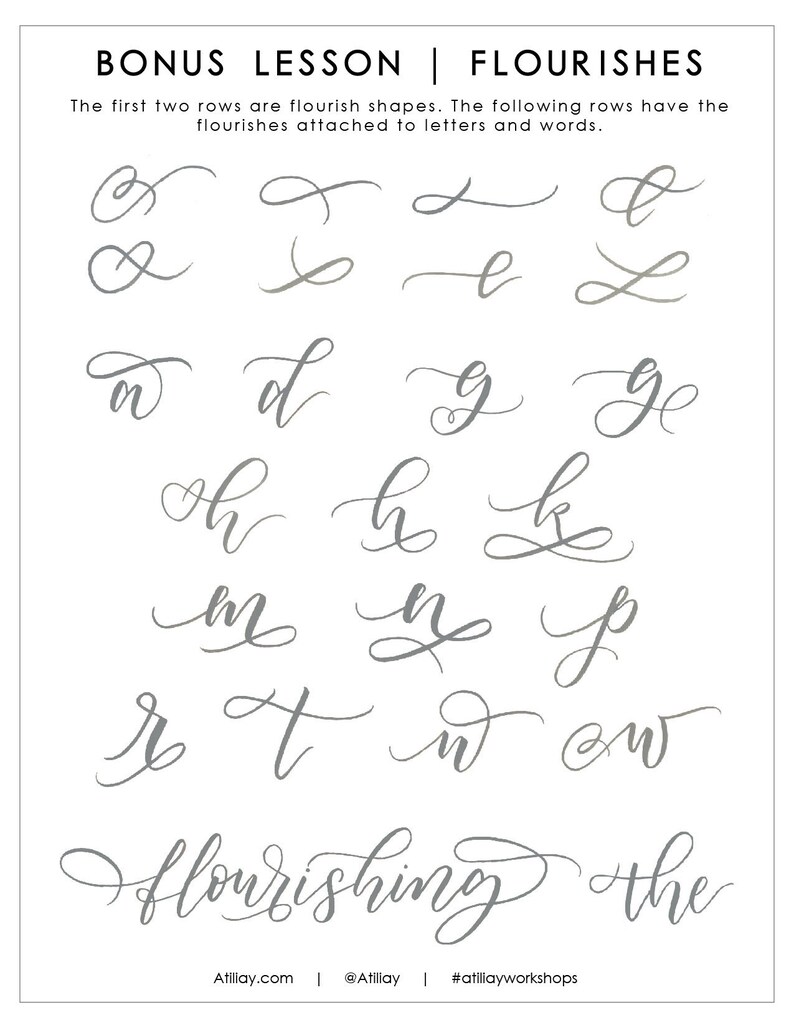 BONUS LESSON | FLOURISHES
The first two rows are flourish shapes. The following rows have the
flourishes attached to letters and words.
a d g g
h h k
m n p
r t w w
flourishing the
Atiliay.com | @Atiliay | #atiliayworkshops